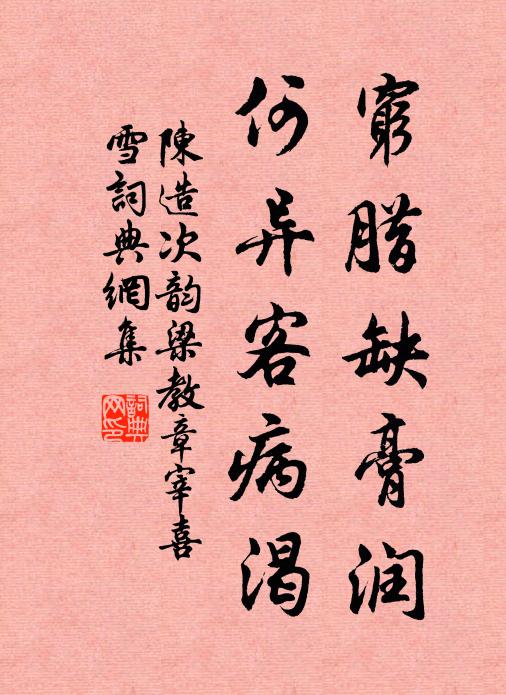 窮腊缺膏润
何异客病渴
陳造次韵梁教章宰喜
雪詞典網集
詞典网印